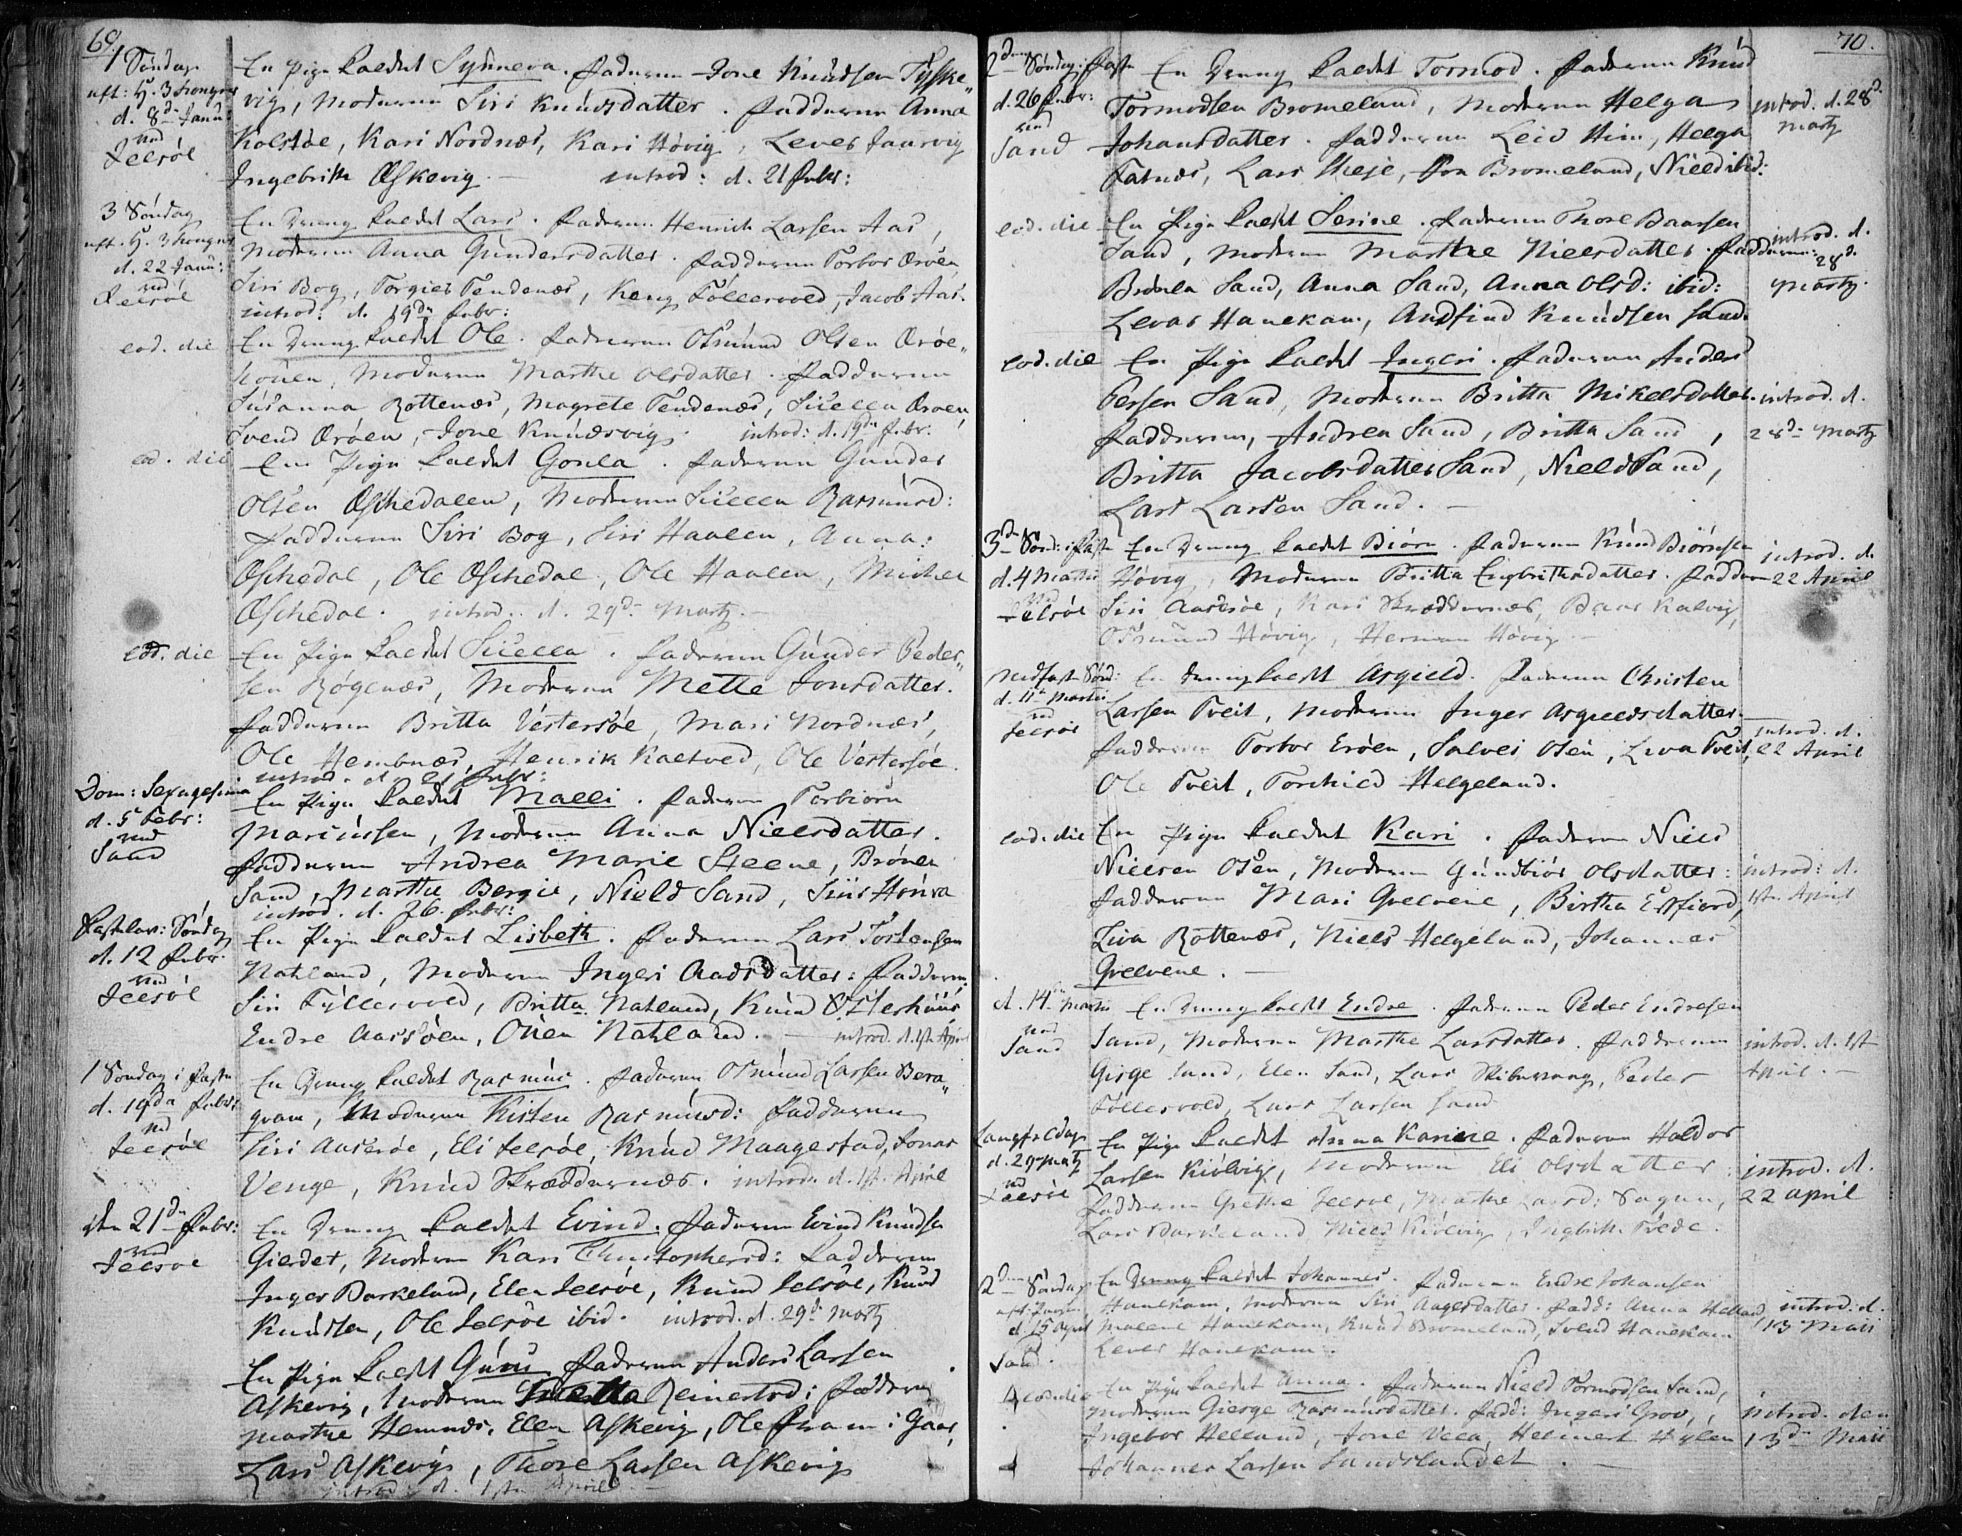 69.
1 Søndag
eft: H. 3 Konger
d. 8de Janu:
ved
Jeelsøe
En Pige kaldet Synneva. Faderen Jone Knudsen Tyske„
vig, Moderen Siri Knudsdatter. Fadderne Anna
Kolstøe, Kari Nordnæs, Kari Høvig, Lever Jaarvig
Ingebrigt Æskevig. introd: d. 21 Febr:
3 Søndag
eft. H. 3 Konger
d. 22 Janu:
ved
Jeelsøe
En Dreng kaldet Lars. Faderen Henrich Larsen Aas,
Moderen Anna Gundersdatter. Fadderne Torbor Ærøen
Siri Bog, Torgier Tendenæs, Jacob Aas.
introd: d. 19de Febr:
eod. die
En Dreng kaldet Ole. Faderen Osmund Olsen Ærøe„
, Moderen Marthe Olsdatter. Fadderne
Susanna Rottenæs, Magrete Tendenæs, Ærøen,
Svend Ærøen, Jone Knudsvig. introd: d. 19de Febr.
eod. die
En Pige kaldet Gonla. Faderen Gunder
Olsen Æskedalen, Moderen Rasmusd:
Fadderne Siri Bog, Siri Haalen, Anna:
Æskedal, Ole Æskedal, Ole Haalen, Michel
Æskedal. introd: d. 29de Marty.
eod. die
En Pige kaldet . Faderen Gunder Peder„
sen Røgenæs, Moderen Mette Jonsdatter.
Fadderne Britta Vestersøe, Mari Nordnæs,
Ole Hembnæs, Henrik Kaltved, Ole Vestersøe.
introd. d. 21 Febr:
Dom: Sexagesima
d. 5 Febr:
ved
Sand
En Pige kaldet Malli. Faderen Torbiørn
Marcussen, Moderen Anna Nielsdatter.
Fadderne Andrea Marie Steene, Brønla
Sand, Marthe Bergie, Niels Sand,
introd. d. 26. Febr:
Fastelav: Søndag
d. 12 Febr.
ved
Jeelsøe
En Pige kaldet Lisbeth. Faderen Lars Tostensen
Natland, Moderen Ingeri Aadsdatter: Fadderne
Siri Tyllesvold, Britta Natland, Knud Østerhuus
Endre Aarsøen, Ouen Natland. introd. d. 1ste April
1 Søndag i Faste
d. 19de Febr:
ved
Jeelsøe
En Dreng kaldet Rasmus. Faderen Osmund Larsen Bera„
qvam, Moderen Kisten Rasmusd: Fadderne
Siri , Eli Jeelsøe, Knud Maagestad, Jonas
Venge, Knud Skreddernæs. introd: d. 1st. April
den 21de Febr:
ved
Jeelsøe
En Dreng kaldet Evind. Faderen Evind Knudsen
Gierdet, Moderen Kari Christophersd: Fadderne
Inger Barkeland, Elen Jeelsøe, Knud Jeelsøe, Knud
Knudsen, Ole Jeelsøe ibid. introd. d. 29de Marty
En Pige kaldet Guru Faderen Anders Larsen
Askevig, Moderen Reinertsd: Fadderne
Marthe Hemnes, Elen Askevig, Ole i Gaar,
Lars Askevig, Thore Larsen Askevig
introd: d. 1ste April
70.
2den Søndag i Faste
d. 26 Febr:
ved
Sand
En Dreng kaldet Tormod. Faderen Knud
Tormodsen Bromeland, Moderen Helga
Johansdatter. Fadderne Leid Him, Helga
Fatnæs, Lars , Bromeland, Niels ibid:
introd. d. 28de
Marty
eod. die
En Pige kaldet Serine. Faderen Thore Baarsen
Sand, Moderen Marthe Nielsdatter. Fadderne:
Brønla Sand, Anna Sand, Anna Olsd: ibid:
Levar Hanekam, Andfind Knudsen Sand.
introd. d.
28de
Marty.
eod. die
En Pige kaldet Ingeri. Faderen Anders
Persen Sand, Moderen Britta Mikelsdatter.
Fadderne, Andrea Sand, Britta Sand,
Britta Jacobsdatter Sand, Niels Sand,
Lars Larsen Sand.
introd. d.
28de Marty
3de Sønd: i Faste
d. 4 Martii
ved
Jeelsøe
En Dreng kaldet Biørn. Faderen Knud Biørnsen
Høvig, Moderen Britta Engbrithsdatter. Fadderne
Siri , Kari Skreddernæs, Baar Kalvig,
Osmund Høvig, Herman Høvig.
introd. d.
22 April
Midfaste Sønd:
d. 11te Martii
ved
Jeelsøe
En Dreng kaldet Asgield. Faderen Christen
Larsen Tveit, Moderen Inger Asgieldsdatter.
Fadderne Torbor Erøen, Salvei Osen, Liva Tveit,
Ole Tveit, Torchild Helgeland.
introd. d.
22 April
eod. die
En Pige kaldet Kari. Faderen Niels
Nielsen Osen, Moderen Gundbiør Olsdatter:
Fadderne Mari Grelvene, Birtha Esfiord,
Liva Rottenæs, Niels Helgeland, Johannes
Grelvene.
introd: d.
1ste April
d. 14de Martii
ved
Sand
En Dreng kaldet Endre. Faderen Peder Endresen
Sand, Moderen Marthe Larsdatter. Fadderne
Girge Sand, Elen Sand, Lars , Peder
Føllesvold, Lars Larsen Sand
introd. d. 1ste
April.
Langfredag
d. 29 Marty
ved
Jeelsøe
En Pige kaldet Anna Karine. Faderen Haldor
Larsen Kiølvig, Moderen Eli Olsdatter
Fadderne Grethe Jeelsøe, Marthe Larsd: Sagen,
Lars Barkeland, Niels Kiølvig, Ingbrith .
introd. d.
22 April
2den Søndag
eft: Paaske
d. 15 April
Sand.
En Dreng kaldet Johannes. Faderen Endre Johansen
Hanekam, Moderen Siri Aagesdatter. Fadd: Anna Helland
Malene Hanekam, Knud Bromeland, Svend Hanekam
Lever Hanekam.
introd. d.
13 Maii
eod. die
En Pige kaldet Anna. Faderen Niels Tormodsen Sand,
Moderen Gierge Rasmusdatter. Fadd: Ingeri Grov,
Ingebor Helland, Jone Vela, Helmert Hylen
Johannes Larsen Sandslandet.
introd. den
13de Maii